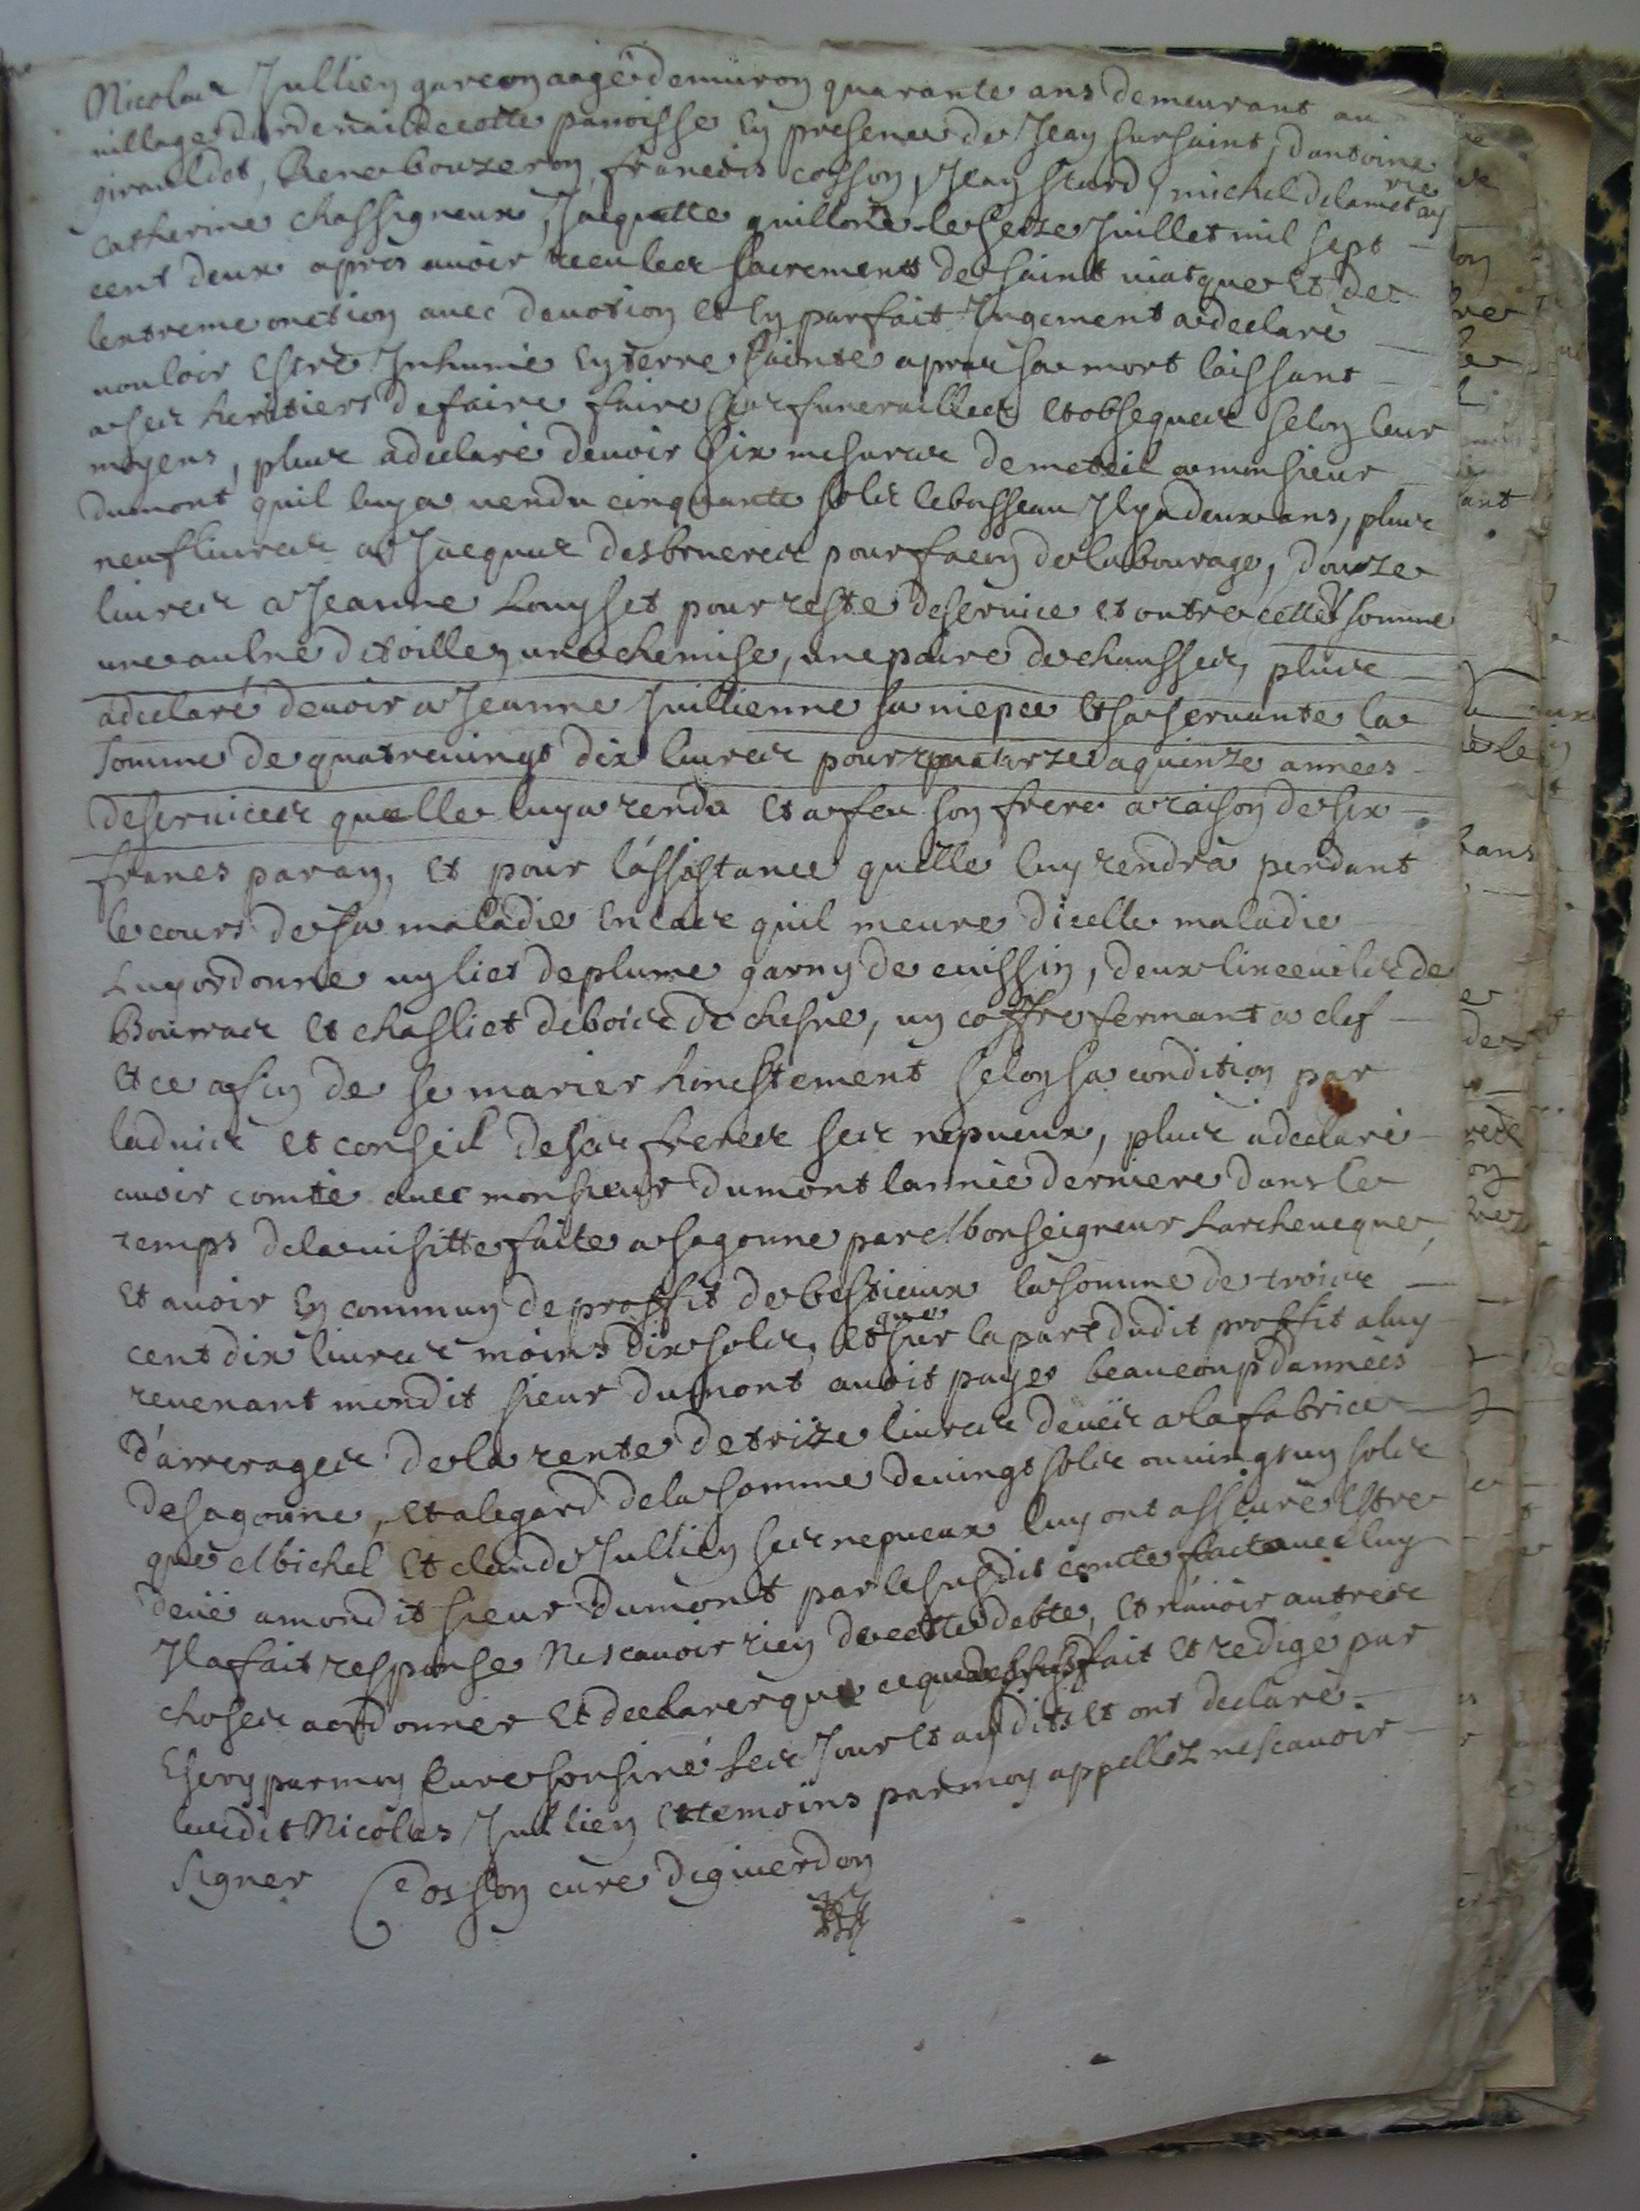 Nicolas Jullien garcon aagé denviron quarante ans demeurant au
village dardenai de cette paroisse En presence de Jean sursaint, dantoine
girauldot, Rene bouzeron, francois cosson, Jean stard, michel delametay rie
catherine chassigneux, Jacquette guillone le seize Juillet mil sept
cent deux apres avoir receu les sacrements de saint viatique Et de
lextreme onction avec devotion et En parfait Jugement a declaré
vouloir Estre Inhumé En terre sainte apres sa mort laissant
a ses heritiers de faire faire ses funerailles et obseques selon leur
moyens, plus a declaré devoir six mesures de meteil a monsieur
dumont quil luy a vendu cinquante sols le boisseau Il y a deux ans, plus
neuf livres a Jacques desbrueres pour facon de labourage, douze
livres a Jeanne Louyset pour reste de service et outre cette somme
une aulne de toille, une chemise, une paire de chausses, plus
a declaré devoir a Jeanne Jullienne sa niepce Et sa servante la
somme de quatrevingt dix livres pour quatorze a quinze années
de services quelle luy a rendu Et a feu son frere a raison de six
francs par an, et pour lassistance quelle luy rendra pendant
le cours de sa maladie En cas quil meure dicelle maladie
Luy ordonne un lict de plume garny de cuissin, deux linceuils de
Bourras et chasliet de bois de chesne, un coffre fermant a clef
Et ce afin de se marier honestement selon sa condition par
ladvis et conseil de ses freres ses nepveux, plus a declaré
avoir comté avec monsieur dumont lannée derniere dans le
temps de la visitte faite a sagonne par Monseigneur Larchevecque,
Et avoir En commun de proffit de bestiaux la somme de trois
cent dix livres moins dix sols, Et que sur la part dudit proffit a luy
revenant mondit sieur dumont avoit payé beaucoup dannées
d'arrerages de la rente de treize livres deües a la fabrice
de sagonne, et a legard de la somme de vingt sols ou vingt un sols
que Michel Et claude Jullien ses nepveux luy ont asseuré Estre
deüe a mondit sieur dumont par le susdit comte fait avec luy
Il a fait responce Ne scavoir rien de cette debte, Et n'avoir autres
choses a ordonner Et declarer que ce que dessus fait et redigé par
Escry par moy Curé sousiné Les Jour et an dits Et ont declaré
ledit Nicolas Jullien Et temoins par moy appellez ne scavoir
signer Cosson curé de giverdon